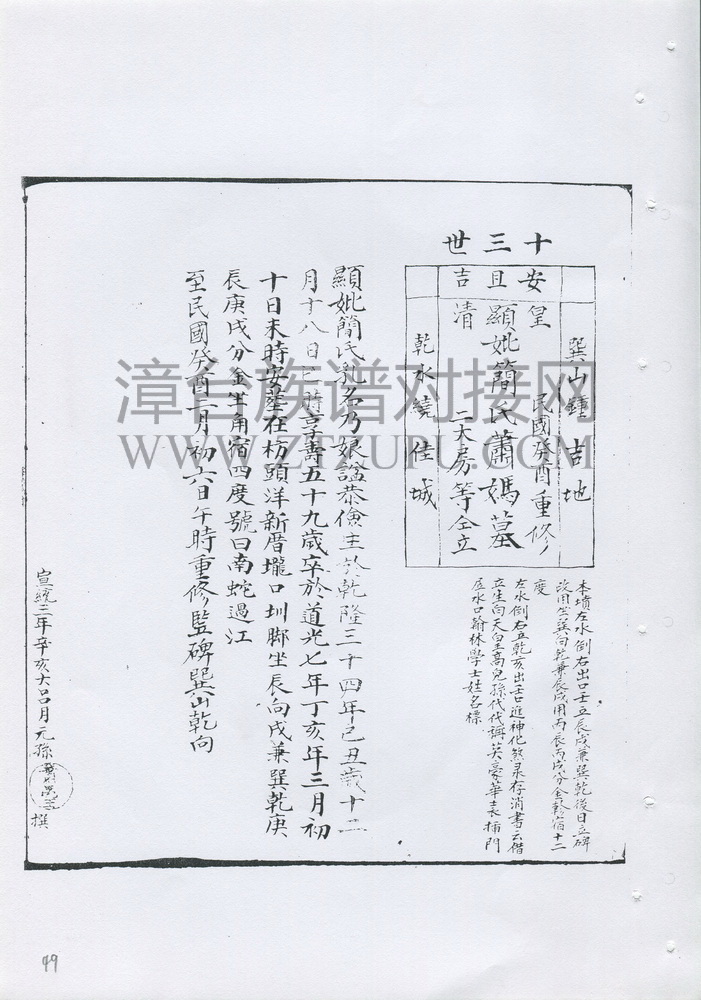 十三世
安且吉
巽山鍾吉地
民國癸酉重修
皇清
顯妣簡氏蕭媽墓
二大房等仝立
乾水繞佳城
本墳左水倒右出口壬立辰戌兼巽乾後日立碑
改用坐巽向乾兼辰戌用丙辰丙戌分金軫宿十二
度
左水倒右立乾亥出壬口進神化煞录存消書云借
立生向天皇高兒孫代代謂英豪華表插門
居水口翰林學士姓名標
顯妣簡氏乳名乃娘諡恭儉生於乾隆三十四年己丑歲十二
月十八日巳時享壽五十九歲卒於道光七年丁亥年三月初
十日未時安塟在枋頭洋新厝壠口圳腳坐辰向戌兼巽乾庚
辰庚戌分金坐角宿四度號曰南蛇過江
至民國癸酉二月初六日午時重修監碑巽山乾向
宣統三年辛亥大呂月元孫 撰
漳台族谱对接网
WWW.ZTZUPU.COM
49